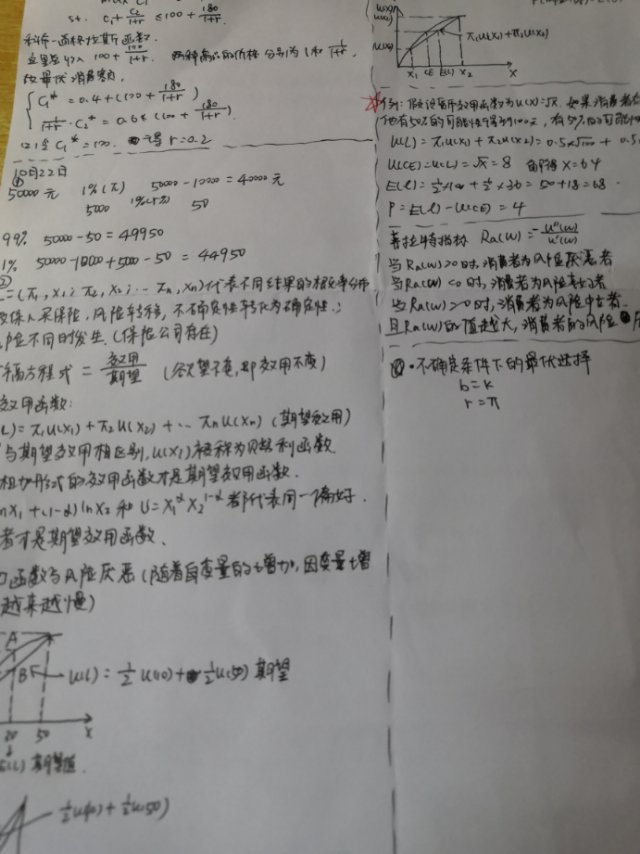 s.t. C₁+C₂/(1+r) ≤100+180/(1+r)
这里总收入 100+180/(1+r). 两种商品的价格分别为1和1/(1+r).
故最优消费额.
C₁* = 0.4×(100+180/(1+r))
1/(1+r)·C₂* = 0.6×(100+180/(1+r))
C₁*=100. 得 r=0.2
10月22日
①
50000元 1%(π) 50000-10000=40000元
5000 50
99% 50000-50=49950
1% 50000-10000+5000-50=44950
②
=(π₁, x₁; π₂, x₂; … πn, xn)代表不同结果的概率分布
投保人买保险,风险转移,不确定性转化为确定性.;
险不同时发生.(保险公司存在)
福方程式 = 效用/期望 (欲望不变,即效用不变)
效用函数:
L)=π₁U(x₁)+π₂U(x₂)+… πnU(xn)(期望效用)
与期望效用相区别,U(x₁)被称为贝努利函数
相加形式的效用函数才是期望效用函数.
nx₁+(1-α)lnx₂ 和 U=x₁^α x₂^(1-α) 都代表同一偏好.
者才是期望效用函数.
函数与风险厌恶(随着自变量的增加,因变量增
越来越慢)
A
B
U(L)=½U(10)+½U(50) 期望
20 50 x
E(L) 期望值.
½U(10)+½U(50)
π₁U(x₁)+π₂U(x₂)
x₁ CE E(L) x₂ x
例:假设效用函数为U(x)=√x. 如果消费者
他有50%的可能性得到100元,有50%的可能性
U(L)=π₁U(x₁)+π₂U(x₂)=0.5×√100 + 0.5
U(CE)=U(L)=√x=8 解得x=64
E(L)=½×100+½×36=50+18=68.
P=E(L)-U(CE)=4
普拉特指标 Ra(W)=-U''(W)/U'(W)
当Ra(W)>0时,消费者为风险厌恶者
当Ra(W)<0时,消费者为风险喜好者
当Ra(W)=0时,消费者为风险中性者.
且Ra(W)的值越大,消费者的风险
·不确定条件下的最优选择
b=k
r=π